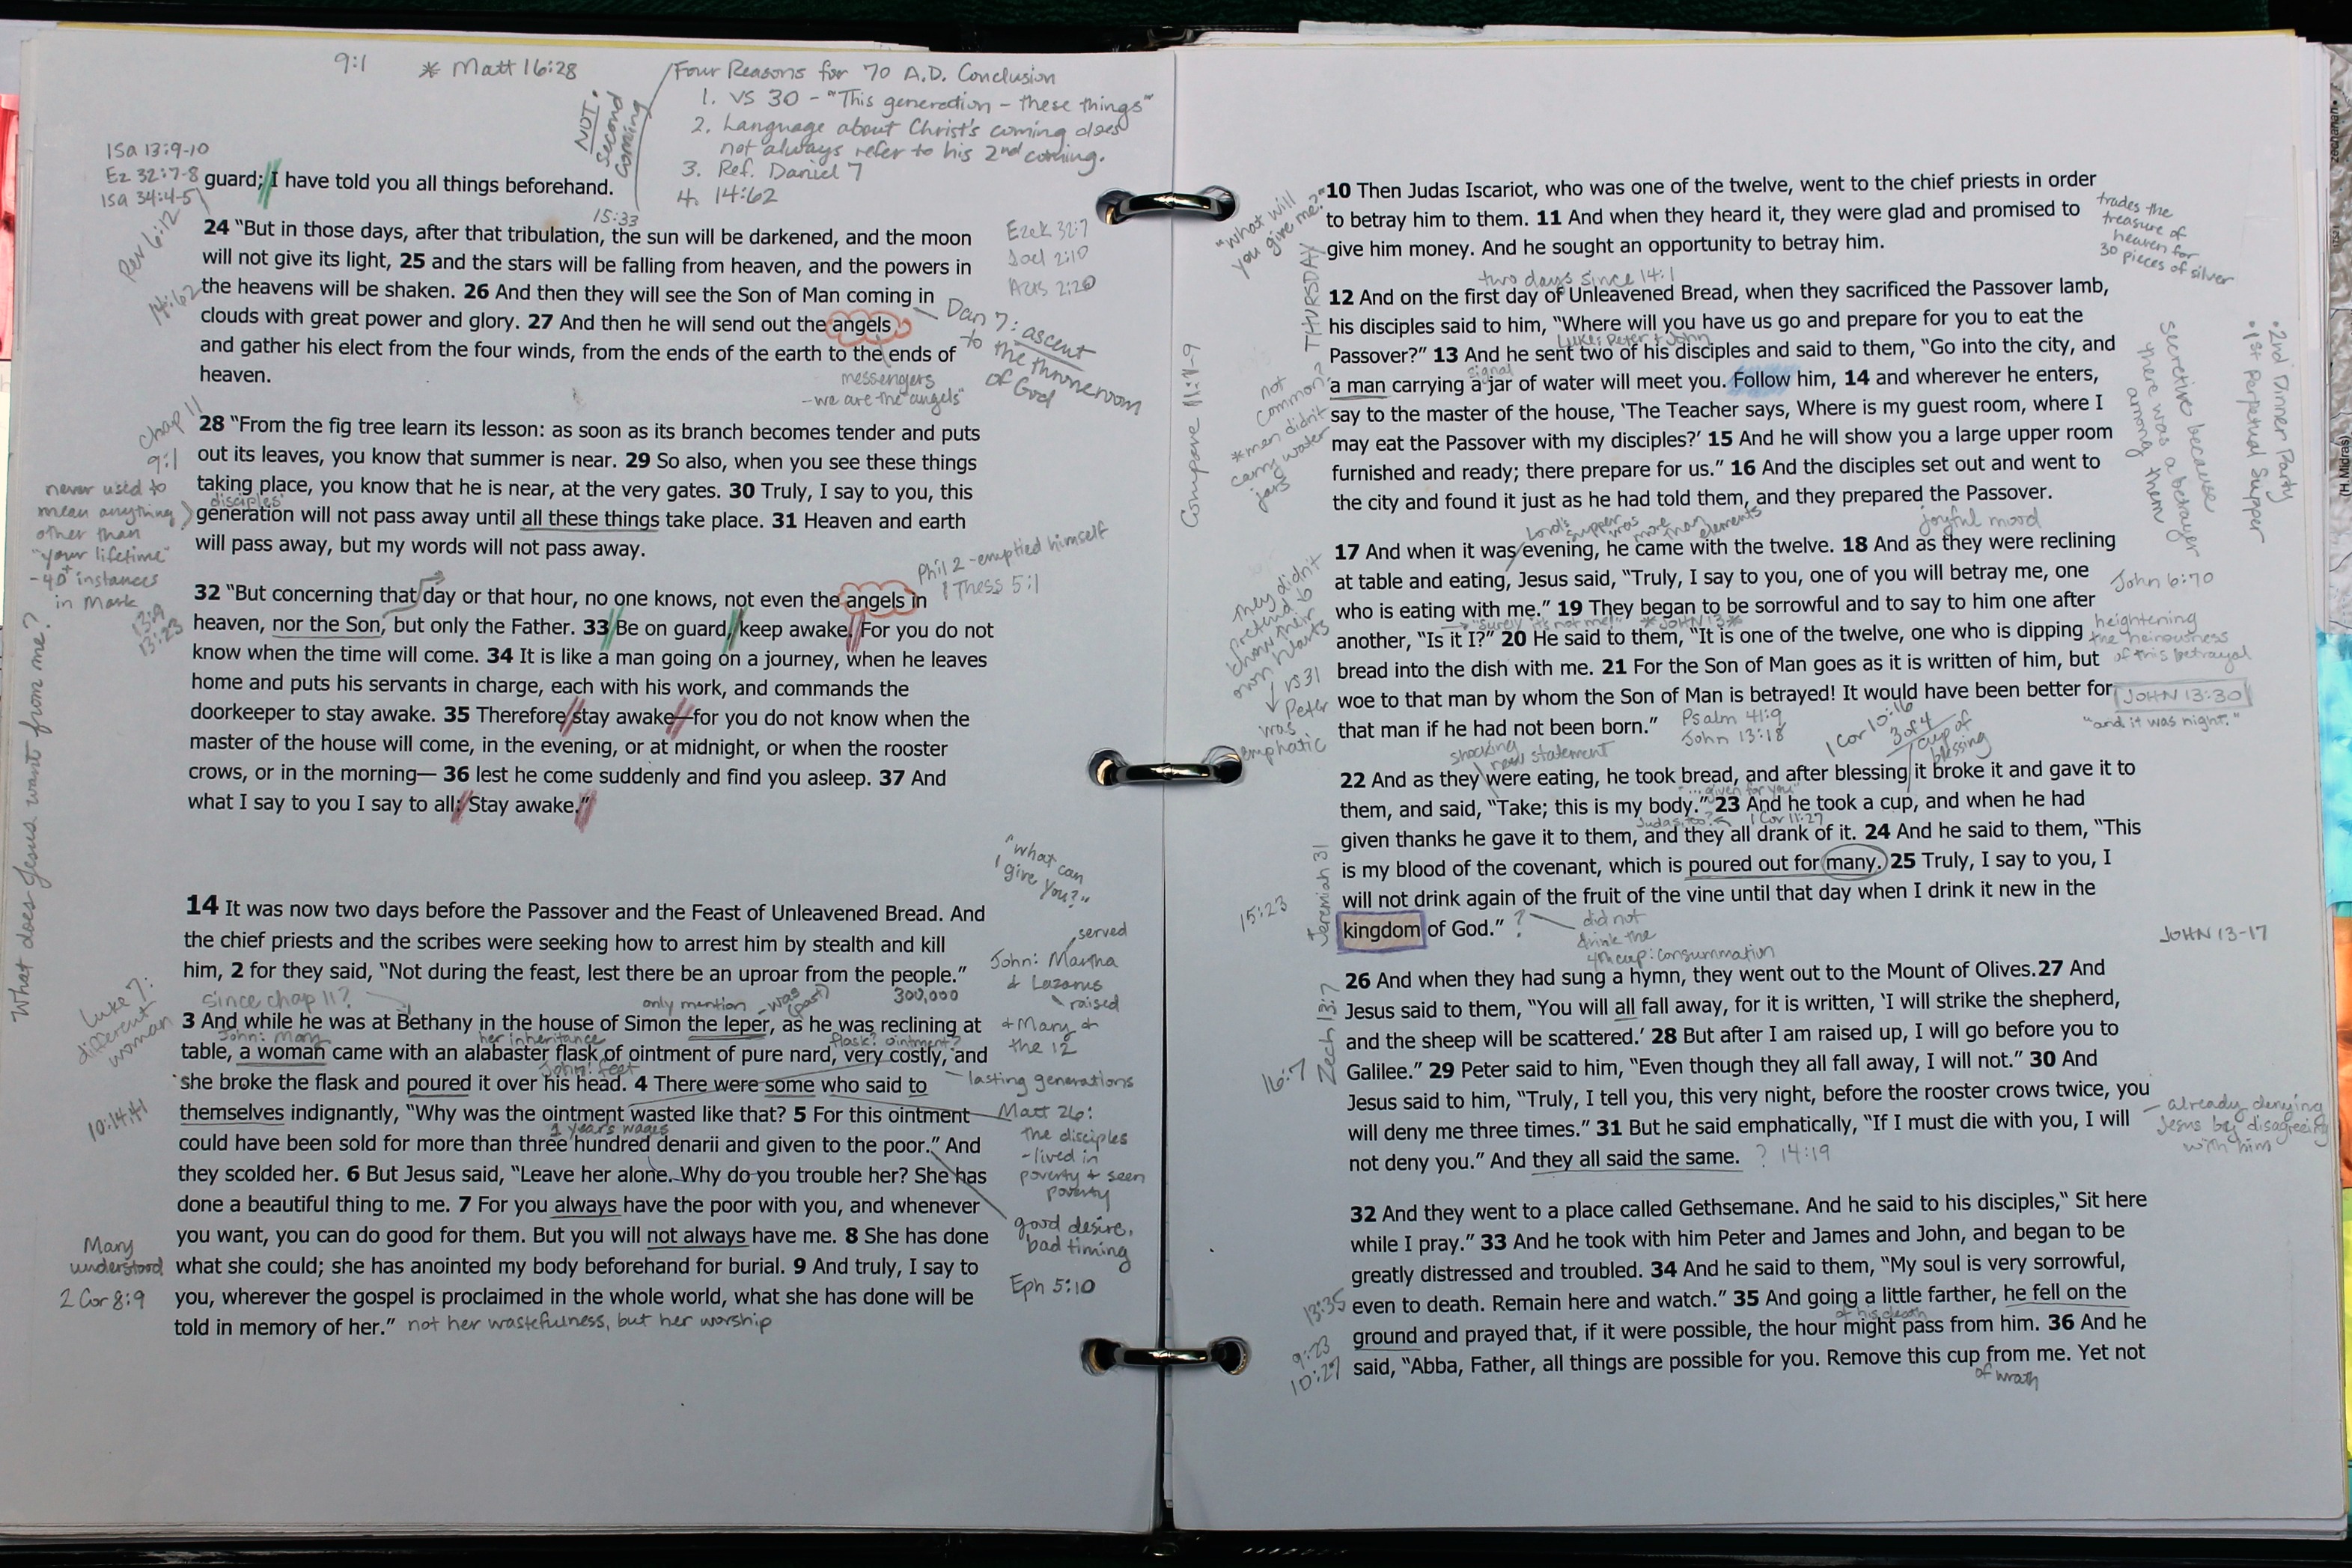 9:1
* Matt 16:28
Four Reasons for 70 A.D. Conclusion
1. VS 30 - "This generation - these things"
2. Language about Christ's coming does
not always refer to his 2nd coming.
3. Ref. Daniel 7
4. 14:62
NOT:
second
coming
Isa 13:9-10
Ez 32:7-8
Isa 34:4-5
Rev 6:12
guard; I have told you all things beforehand.
15:33
24 “But in those days, after that tribulation, the sun will be darkened, and the moon
will not give its light, 25 and the stars will be falling from heaven, and the powers in
the heavens will be shaken. 26 And then they will see the Son of Man coming in
clouds with great power and glory. 27 And then he will send out the angels
and gather his elect from the four winds, from the ends of the earth to the ends of
heaven.
14:62
Ezek 32:7
Joel 2:10
Acts 2:20
Dan 7: ascent
to the throneroom
of God
messengers
-we are the "angels"
Chap 11
9:1
28 “From the fig tree learn its lesson: as soon as its branch becomes tender and puts
out its leaves, you know that summer is near. 29 So also, when you see these things
taking place, you know that he is near, at the very gates. 30 Truly, I say to you, this
disciples'
generation will not pass away until all these things take place. 31 Heaven and earth
will pass away, but my words will not pass away.
never used to
mean anything
other than
"your lifetime"
- 40+ instances
in Mark
13:9
13:23
Phil 2 - emptied himself
1 Thess 5:1
32 “But concerning that day or that hour, no one knows, not even the angels in
heaven, nor the Son, but only the Father. 33 Be on guard, keep awake. For you do not
know when the time will come. 34 It is like a man going on a journey, when he leaves
home and puts his servants in charge, each with his work, and commands the
doorkeeper to stay awake. 35 Therefore stay awake—for you do not know when the
master of the house will come, in the evening, or at midnight, or when the rooster
crows, or in the morning— 36 lest he come suddenly and find you asleep. 37 And
what I say to you I say to all: Stay awake.”
What does Jesus want from me?
"what can
I give you?"
14 It was now two days before the Passover and the Feast of Unleavened Bread. And
the chief priests and the scribes were seeking how to arrest him by stealth and kill
him, 2 for they said, “Not during the feast, lest there be an uproar from the people.”
300,000
served
John: Martha
& Lazarus
raised
+ Mary &
the 12
Luke 7:
different
woman
since chap 11?
only mention
-was (past)
3 And while he was at Bethany in the house of Simon the leper, as he was reclining at
John: Mary
her inheritance
flask? ointment?
table, a woman came with an alabaster flask of ointment of pure nard, very costly, and
John: feet
she broke the flask and poured it over his head. 4 There were some who said to
lasting generations
themselves indignantly, “Why was the ointment wasted like that? 5 For this ointment
1 years wages
could have been sold for more than three hundred denarii and given to the poor.” And
they scolded her. 6 But Jesus said, “Leave her alone. Why do you trouble her? She has
done a beautiful thing to me. 7 For you always have the poor with you, and whenever
you want, you can do good for them. But you will not always have me. 8 She has done
what she could; she has anointed my body beforehand for burial. 9 And truly, I say to
you, wherever the gospel is proclaimed in the whole world, what she has done will be
told in memory of her.” not her wastefulness, but her worship
Matt 26:
the disciples
- lived in
poverty & seen
poverty
good desire,
bad timing
Eph 5:10
10:14,41
Mary
understood
2 Cor 8:9
"what will
you give me?"
THURSDAY
10 Then Judas Iscariot, who was one of the twelve, went to the chief priests in order
to betray him to them. 11 And when they heard it, they were glad and promised to
give him money. And he sought an opportunity to betray him.
trades the
treasure of
heaven for
30 pieces of silver
two days since 14:1
12 And on the first day of Unleavened Bread, when they sacrificed the Passover lamb,
his disciples said to him, “Where will you have us go and prepare for you to eat the
Luke: Peter & John
Passover?” 13 And he sent two of his disciples and said to them, “Go into the city, and
signal
a man carrying a jar of water will meet you. Follow him, 14 and wherever he enters,
say to the master of the house, ‘The Teacher says, Where is my guest room, where I
may eat the Passover with my disciples?’ 15 And he will show you a large upper room
furnished and ready; there prepare for us.” 16 And the disciples set out and went to
the city and found it just as he had told them, and they prepared the Passover.
not
common?
*men didn't
carry water
jars
Compare 11:1-9
secretive because
there was a betrayer
among them
• 2nd Dinner Party
• 1st Perpetual Supper
Lord's supper was more than elements
joyful mood
17 And when it was evening, he came with the twelve. 18 And as they were reclining
at table and eating, Jesus said, “Truly, I say to you, one of you will betray me, one
who is eating with me.” 19 They began to be sorrowful and to say to him one after
"surely it's not me!"
*JOHN 13*
another, “Is it I?” 20 He said to them, “It is one of the twelve, one who is dipping
bread into the dish with me. 21 For the Son of Man goes as it is written of him, but
woe to that man by whom the Son of Man is betrayed! It would have been better for
that man if he had not been born.”
Psalm 41:9
John 13:18
John 6:70
heightening
the heinousness
of this betrayal
JOHN 13:30
"and it was night."
they didn't
pretend to
know their
own hearts
vs 31
Peter
was
emphatic
shocking
new statement
1 Cor 10:16
3 of 4
cup of
blessing
22 And as they were eating, he took bread, and after blessing it broke it and gave it to
"...given for you"
them, and said, “Take; this is my body.” 23 And he took a cup, and when he had
Judas, too?
1 Cor 11:27
given thanks he gave it to them, and they all drank of it. 24 And he said to them, “This
is my blood of the covenant, which is poured out for many. 25 Truly, I say to you, I
will not drink again of the fruit of the vine until that day when I drink it new in the
kingdom of God.” ?
did not
drink the
4th cup: consummation
Jeremiah 31
15:23
JOHN 13-17
26 And when they had sung a hymn, they went out to the Mount of Olives.27 And
Jesus said to them, “You will all fall away, for it is written, ‘I will strike the shepherd,
and the sheep will be scattered.’ 28 But after I am raised up, I will go before you to
Galilee.” 29 Peter said to him, “Even though they all fall away, I will not.” 30 And
Jesus said to him, “Truly, I tell you, this very night, before the rooster crows twice, you
will deny me three times.” 31 But he said emphatically, “If I must die with you, I will
not deny you.” And they all said the same. ? 14:19
Zech 13:7
16:7
- already denying
Jesus by disagreeing
with him
32 And they went to a place called Gethsemane. And he said to his disciples,“ Sit here
while I pray.” 33 And he took with him Peter and James and John, and began to be
greatly distressed and troubled. 34 And he said to them, “My soul is very sorrowful,
even to death. Remain here and watch.” 35 And going a little farther, he fell on the
of his death
ground and prayed that, if it were possible, the hour might pass from him. 36 And he
said, “Abba, Father, all things are possible for you. Remove this cup from me. Yet not
of wrath
13:35
9:23
10:27
(H.Midras)